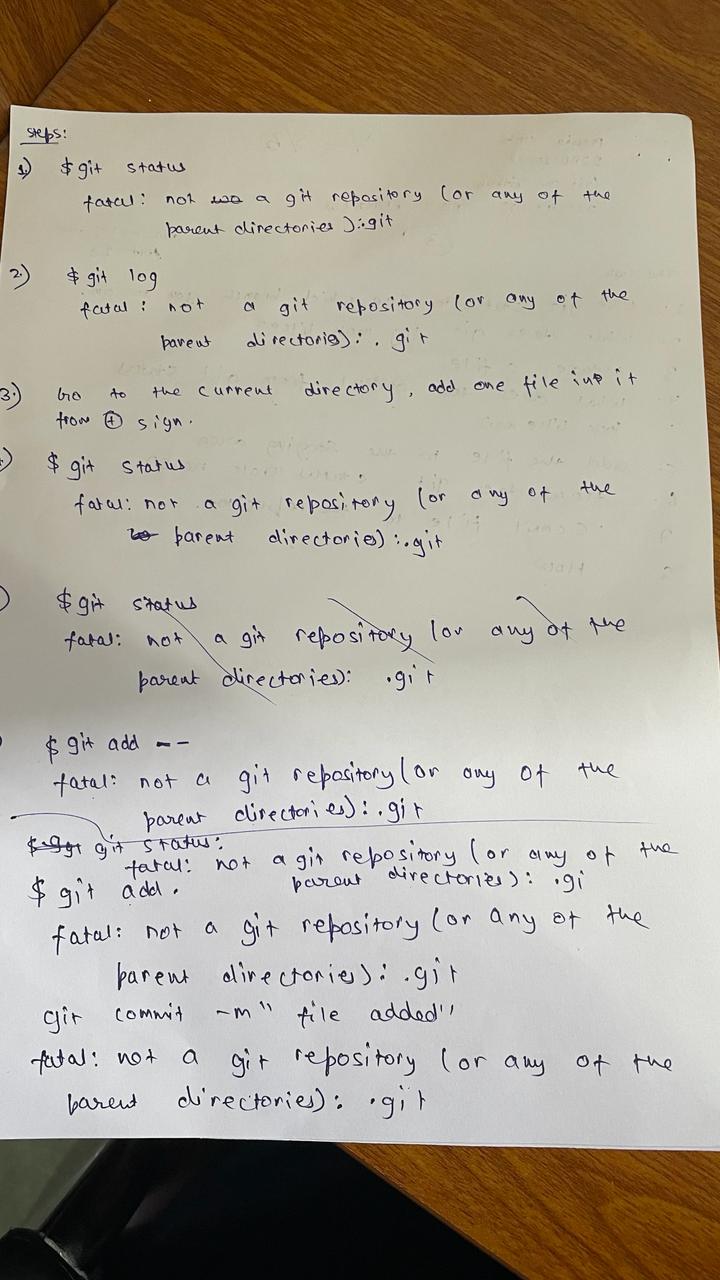 Steps:
1.) $ git status
fatal: not a git repository (or any of the
parent directories ):.git
2.) $ git log
fatal: not a git repository (or any of the
parent directories):. git
3.) Go to the current directory, add one file into it
from + sign.
) $ git status
fatal: not a git repository (or any of the
parent directories):.git
) $ git status
fatal: not a git repository (or any of the
parent directories): .git
$ git add --
fatal: not a git repository (or any of the
parent directories):.git
git status:
fatal: not a git repository (or any of the
parent directories): .gi
$ git add .
fatal: not a git repository (or any of the
parent directories): .git
git commit -m " file added"
fatal: not a git repository (or any of the
parent directories): .git